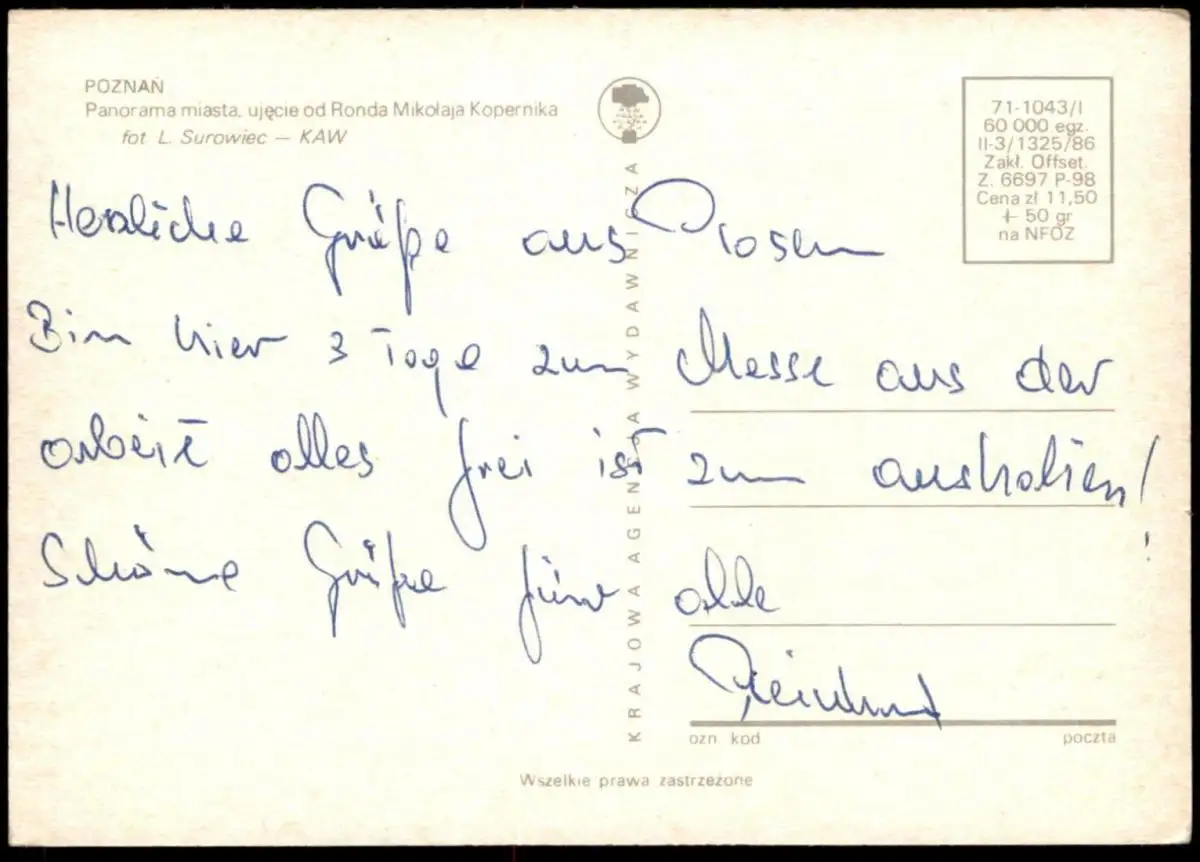 POZNAŃ
Panorama miasta, ujęcie od Ronda Mikołaja Kopernika
fot L. Surowiec — KAW
71-1043/I
60 000 egz.
II-3/1325/86
Zakł. Offset.
Z. 6697 P-98
Cena zł 11,50
+ 50 gr
na NFOZ
Herzliche Grüße aus Posen
Bin hier 3 Tage zum Messe aus der
arbeit alles frei ist zum aushalten!
Schöne Grüße fürr alle
Reinhard
KRAJOWA AGENCJA WYDAWNICZA
ozn kod
poczta
Wszelkie prawa zastrzeżone